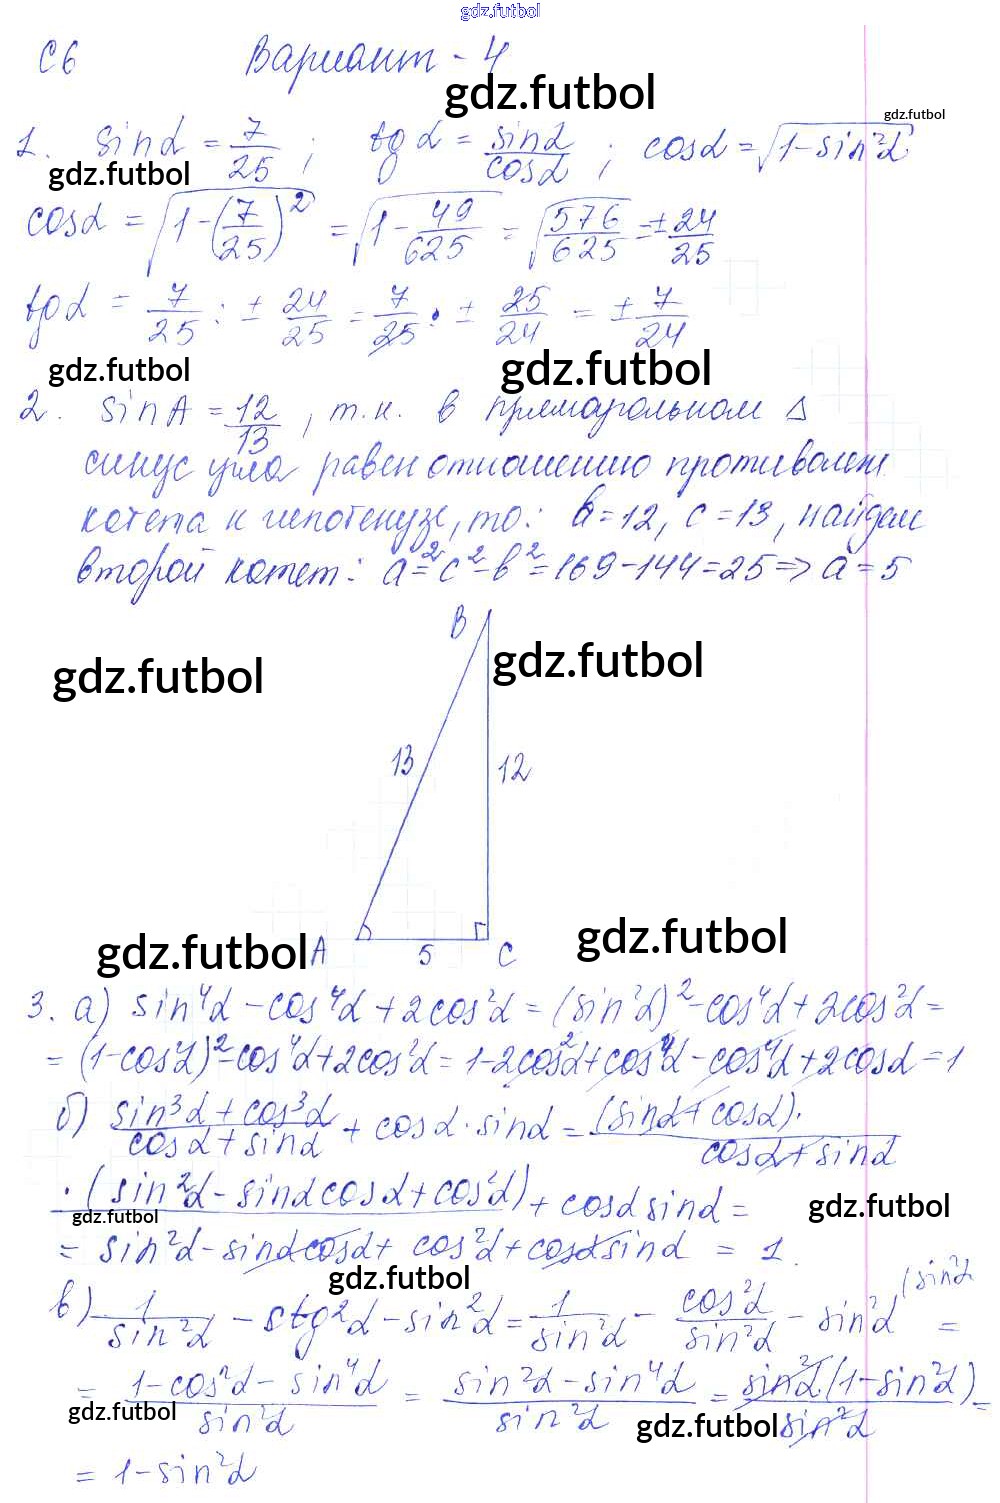 gdz.futbol
С6 Вариант - 4
gdz.futbol
gdz.futbol
1. sin α = 7/25 ; tg α = sin α/cos α ; cos α = √(1-sin²α)
gdz.futbol
cos α = √(1-(7/25)²) = √(1-49/625) = √(576/625) = ± 24/25
tg α = 7/25 : ± 24/25 = 7/25 · ± 25/24 = ± 7/24
gdz.futbol
gdz.futbol
2. sin A = 12/13, т.к. в прямоугольном Δ
синус угла равен отношению противолеж
катета к гипотенузе, то: b=12, c=13, найдем
второй катет: a²=c²-b²=169-144=25=> a=5
B
gdz.futbol
gdz.futbol
13
12
gdz.futbol
A
5
C
gdz.futbol
3. а) sin⁴α - cos⁴α + 2cos²α = (sin²α)² - cos⁴α + 2cos²α =
= (1-cos²α)² - cos⁴α + 2cos²α = 1-2cos²α + cos⁴α - cos⁴α + 2cosα = 1
б) (sin³α + cos³α)/(cosα + sinα) + cosα · sinα = (sinα + cosα)·/(cosα + sinα)
·(sin²α - sinα cosα + cos²α) + cosα sinα =
gdz.futbol
gdz.futbol
= sin²α - sinα cosα + cos²α + cosα sinα = 1.
gdz.futbol
в) 1/sin²α - ctg²α - sin²α = 1/sin²α - cos²α/sin²α - sin²α (sin²α =
= (1-cos²α - sin⁴α)/sin²α = (sin²α - sin⁴α)/sin²α = sin²α(1-sin²α)/sin²α =
gdz.futbol
gdz.futbol
= 1-sin²α